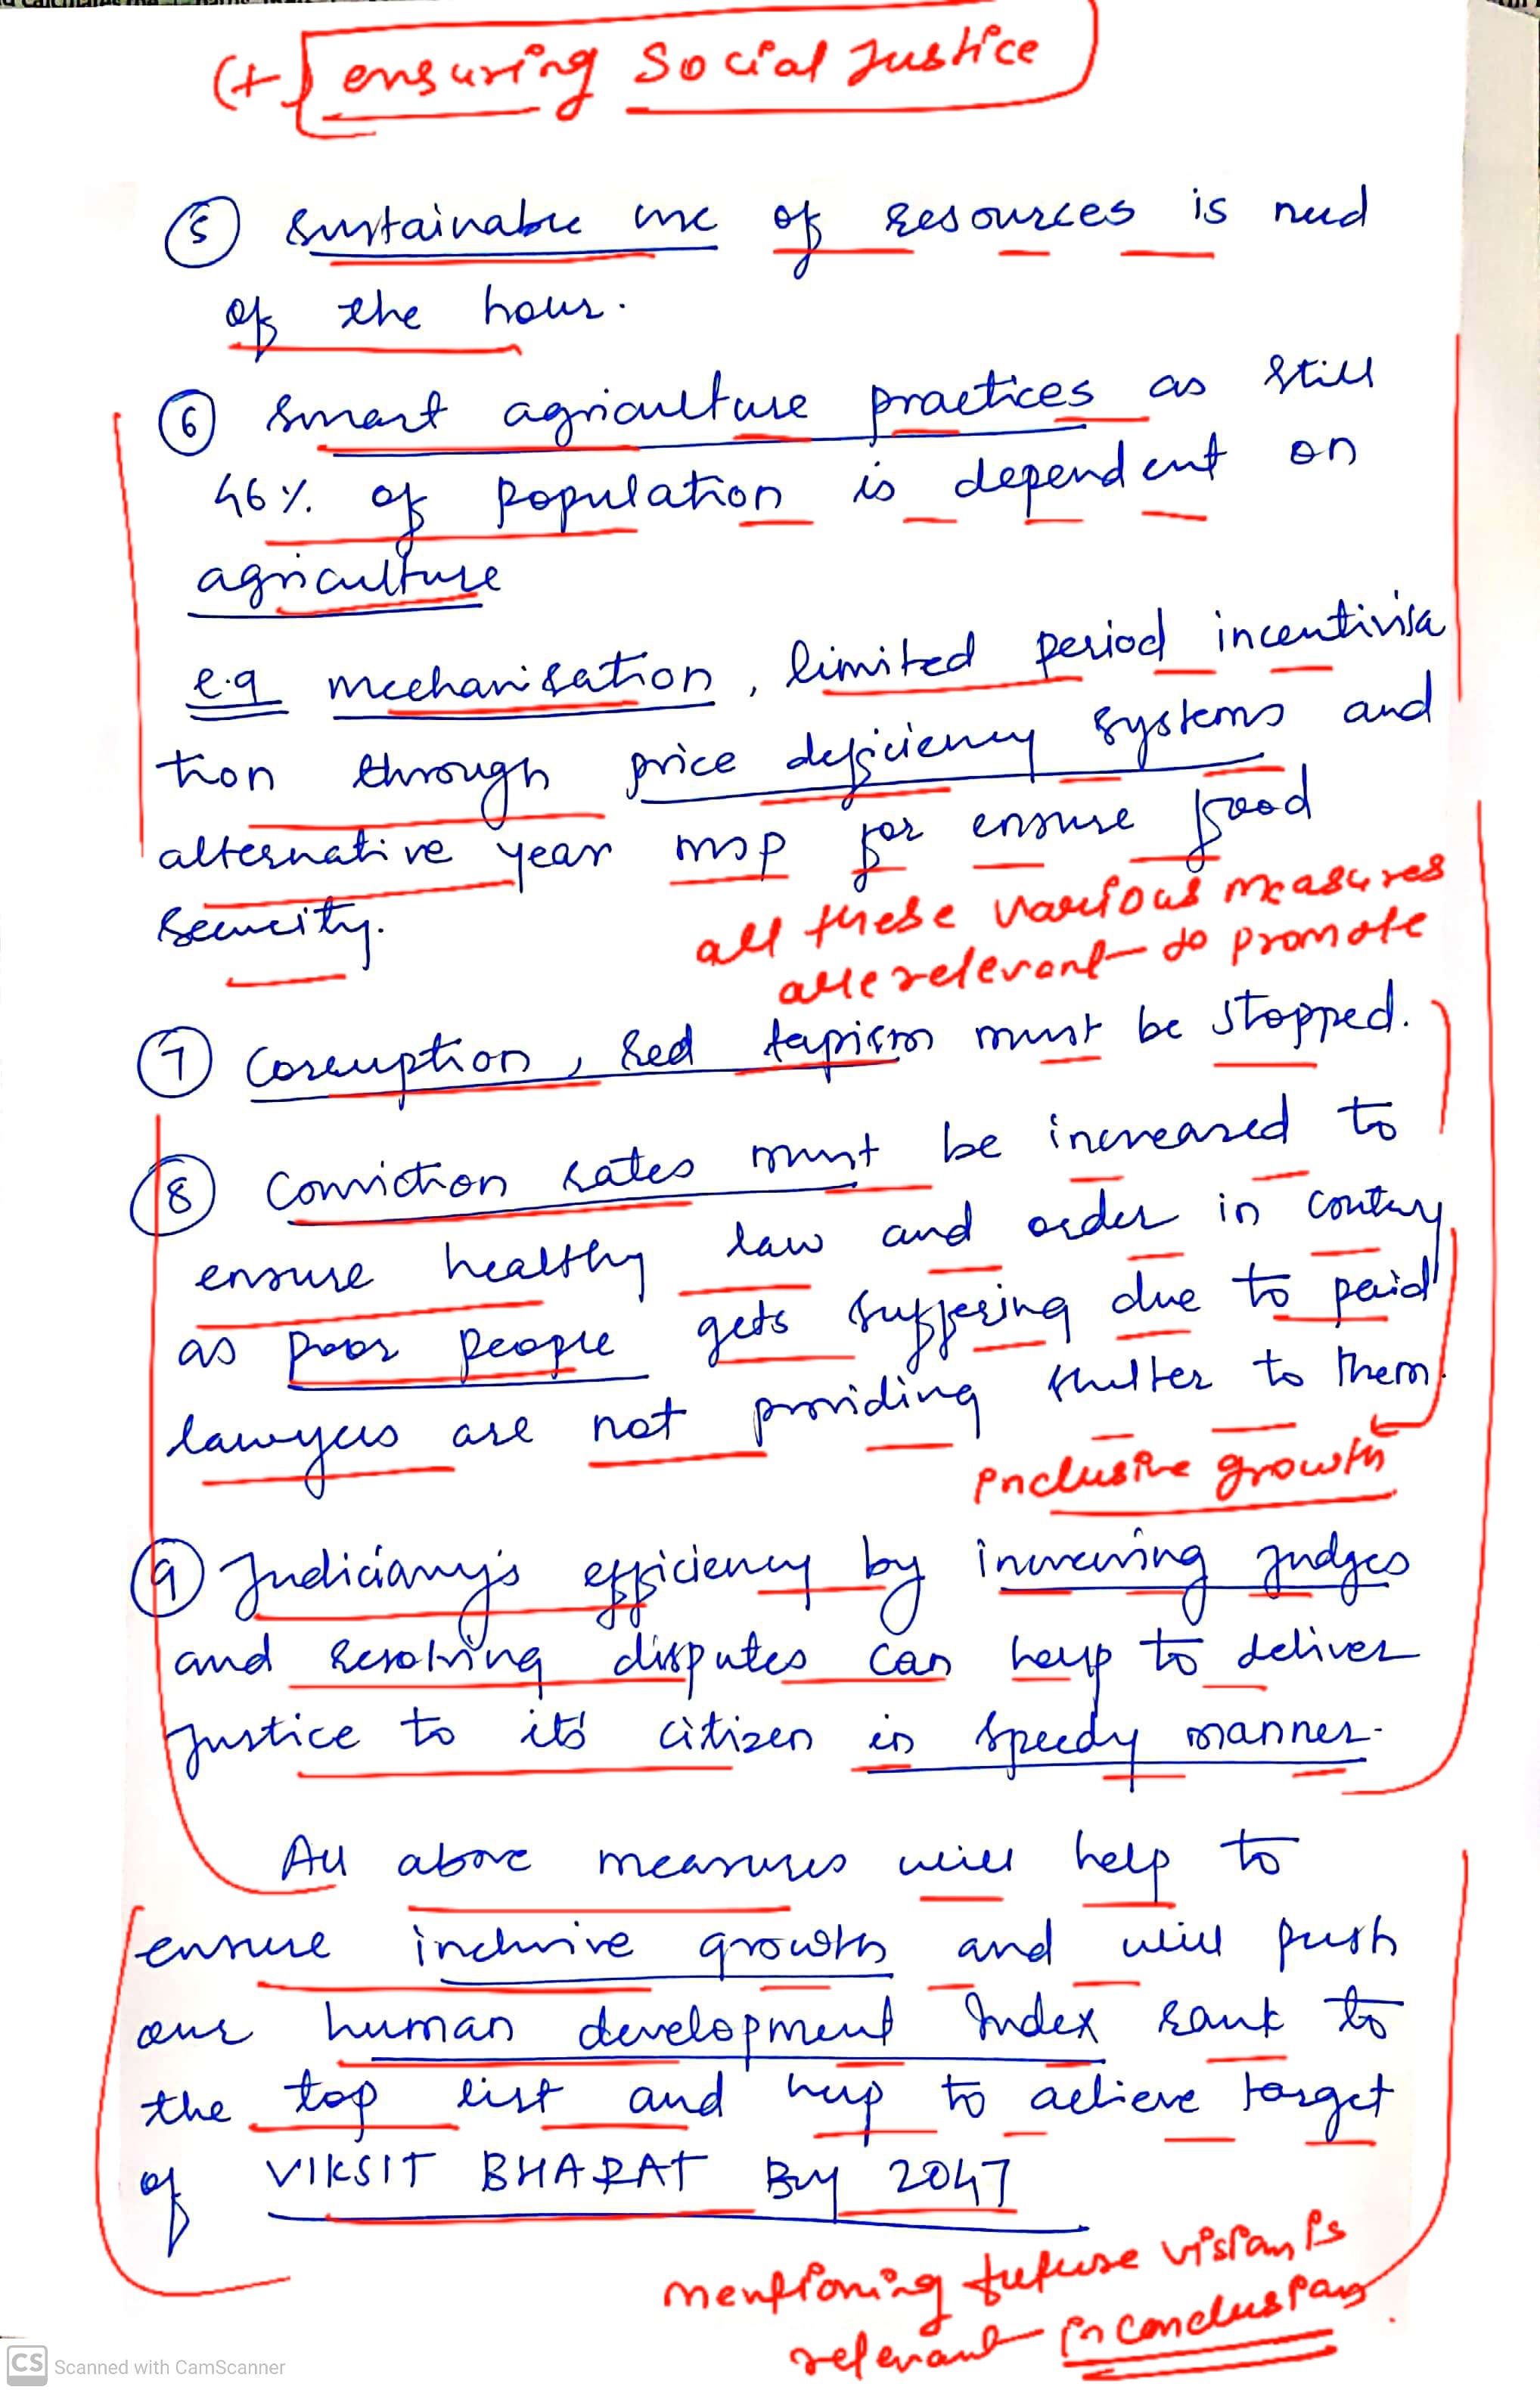 (+) ensuring Social Justice
⑤ Sustainable use of resources is need
of the hour.
⑥ Smart agriculture practices as still
46% of population is dependent on
agriculture
e.g mechanisation, limited period incentivisa
tion through price deficiency systems and
alternative year MSP for ensure food
security.
all these various measures
are relevant to promote
⑦ Corruption, Red tapism must be stopped.
⑧ Conviction rates must be increased to
ensure healthy law and order in contry
as poor people gets suffering due to paid
lawyers are not providing shelter to them.
inclusive growth
⑨ Judiciary's efficiency by increasing judges
and resolving disputes can help to deliver
justice to its' citizen in speedy manner.
All above measures will help to
ensure inclusive growth and will push
our human development Index rank to
the top list and help to achieve target
of VIKSIT BHARAT By 2047
mentioning future vision is
relevant in conclusion.
CS Scanned with CamScanner